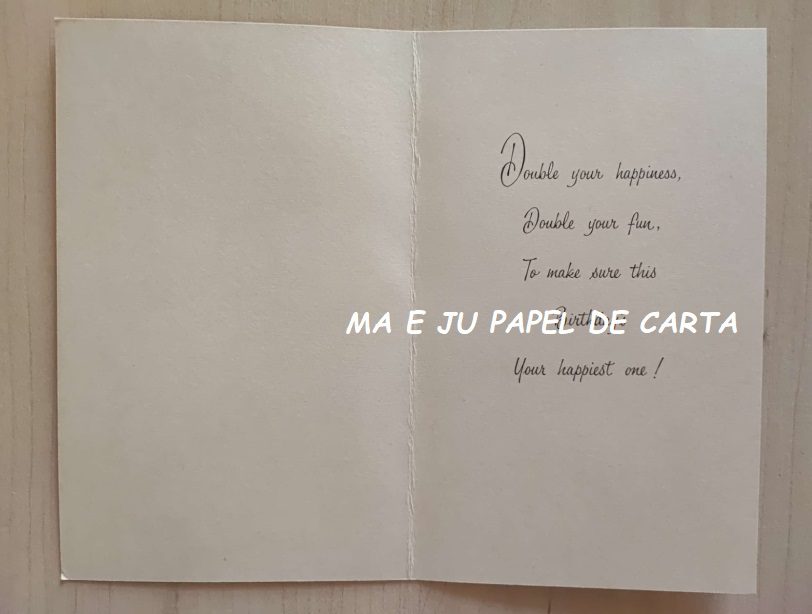 Double your happiness,
Double your fun,
To make sure this
MA E JU PAPEL DE CARTA
Your happiest one!